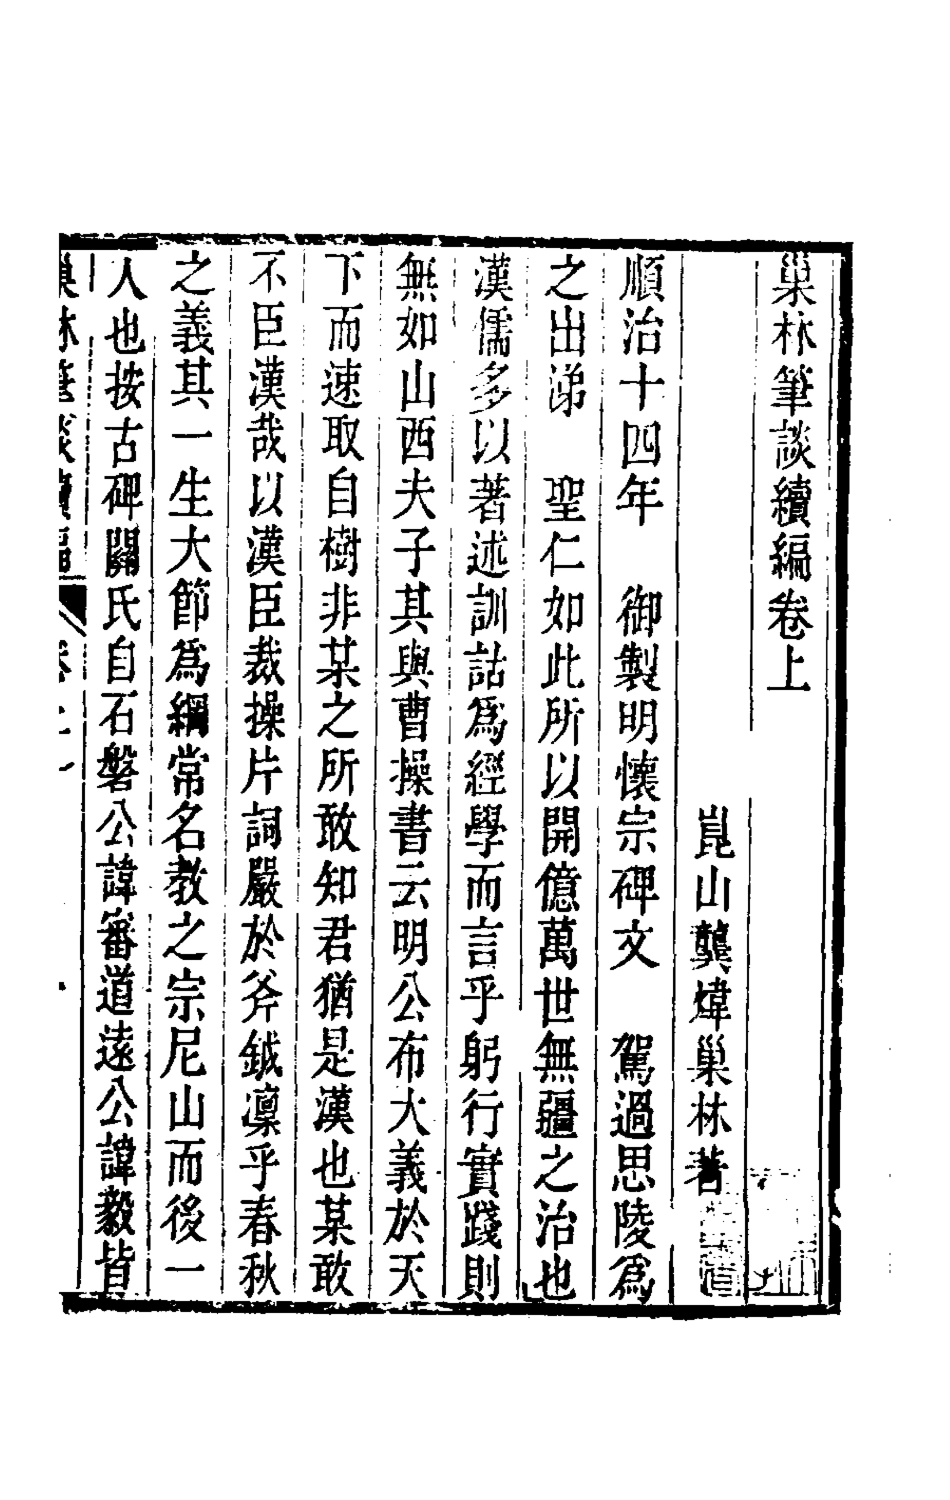 巢林筆談續編卷上
崑山龔煒巢林著
順治十四年　御製明懷宗碑文　駕過思陵爲
之出涕　聖仁如此所以開億萬世無疆之治也
漢儒多以著述訓詁爲經學而言乎躬行實踐則
無如山西夫子其與曹操書云明公布大義於天
下而速取自樹非某之所敢知君猶是漢也某敢
不臣漢哉以漢臣裁操片詞嚴於斧鉞凜乎春秋
之義其一生大節爲綱常名教之宗尼山而後一
人也按古碑關氏自石磐公諱審道遠公諱毅皆
巢林筆談續編
卷上
一